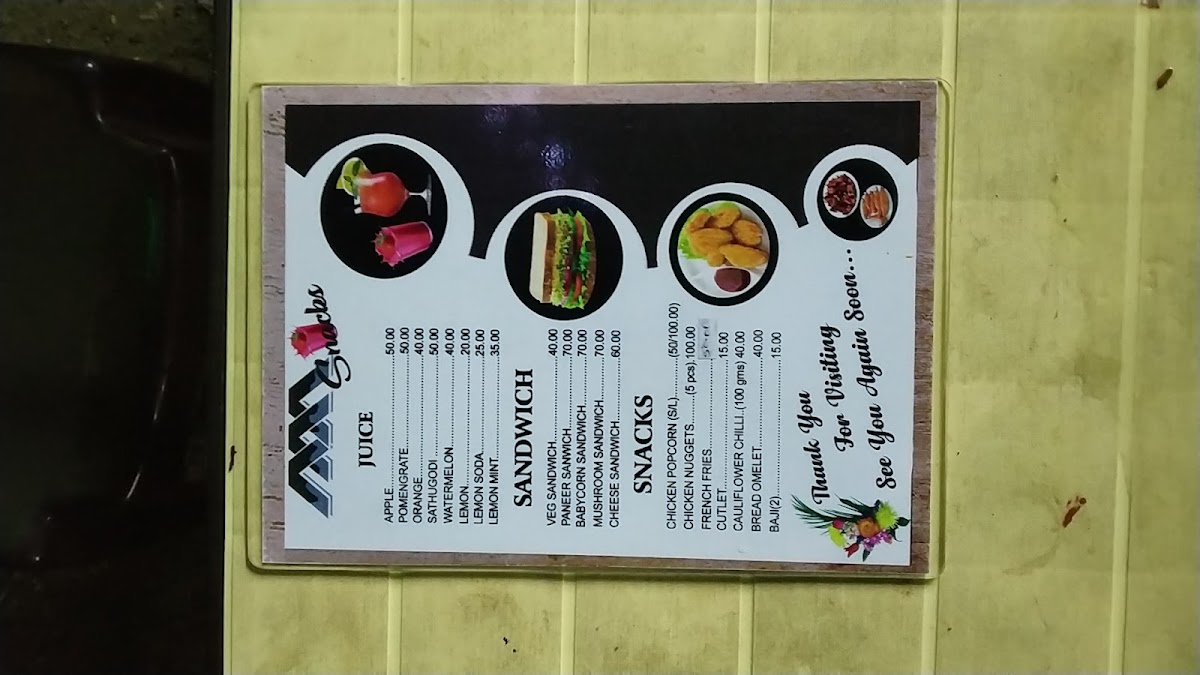 Snacks
JUICE
APPLE.....................................50.00
POMENGRATE.....................50.00
ORANGE...............................40.00
SATHUGODI..........................50.00
WATERMELON.....................40.00
LEMON.................................20.00
LEMON SODA........................25.00
LEMON MINT.........................35.00
SANDWICH
VEG SANDWICH.....................40.00
PANEER SANWICH.................70.00
BABYCORN SANDWICH...........70.00
MUSHROOM SANDWICH.........70.00
CHEESE SANDWICH...............60.00
SNACKS
CHICKEN POPCORN (S/L)..........(50/100.00)
CHICKEN NUGGETS.......(5 pcs).100.00
FRENCH FRIES.......................
CUTLET.................................15.00
CAULIFLOWER CHILLI..(100 gms) 40.00
BREAD OMELET.....................40.00
BAJI(2)..................................15.00
Thank You
For Visiting
See You Again Soon...